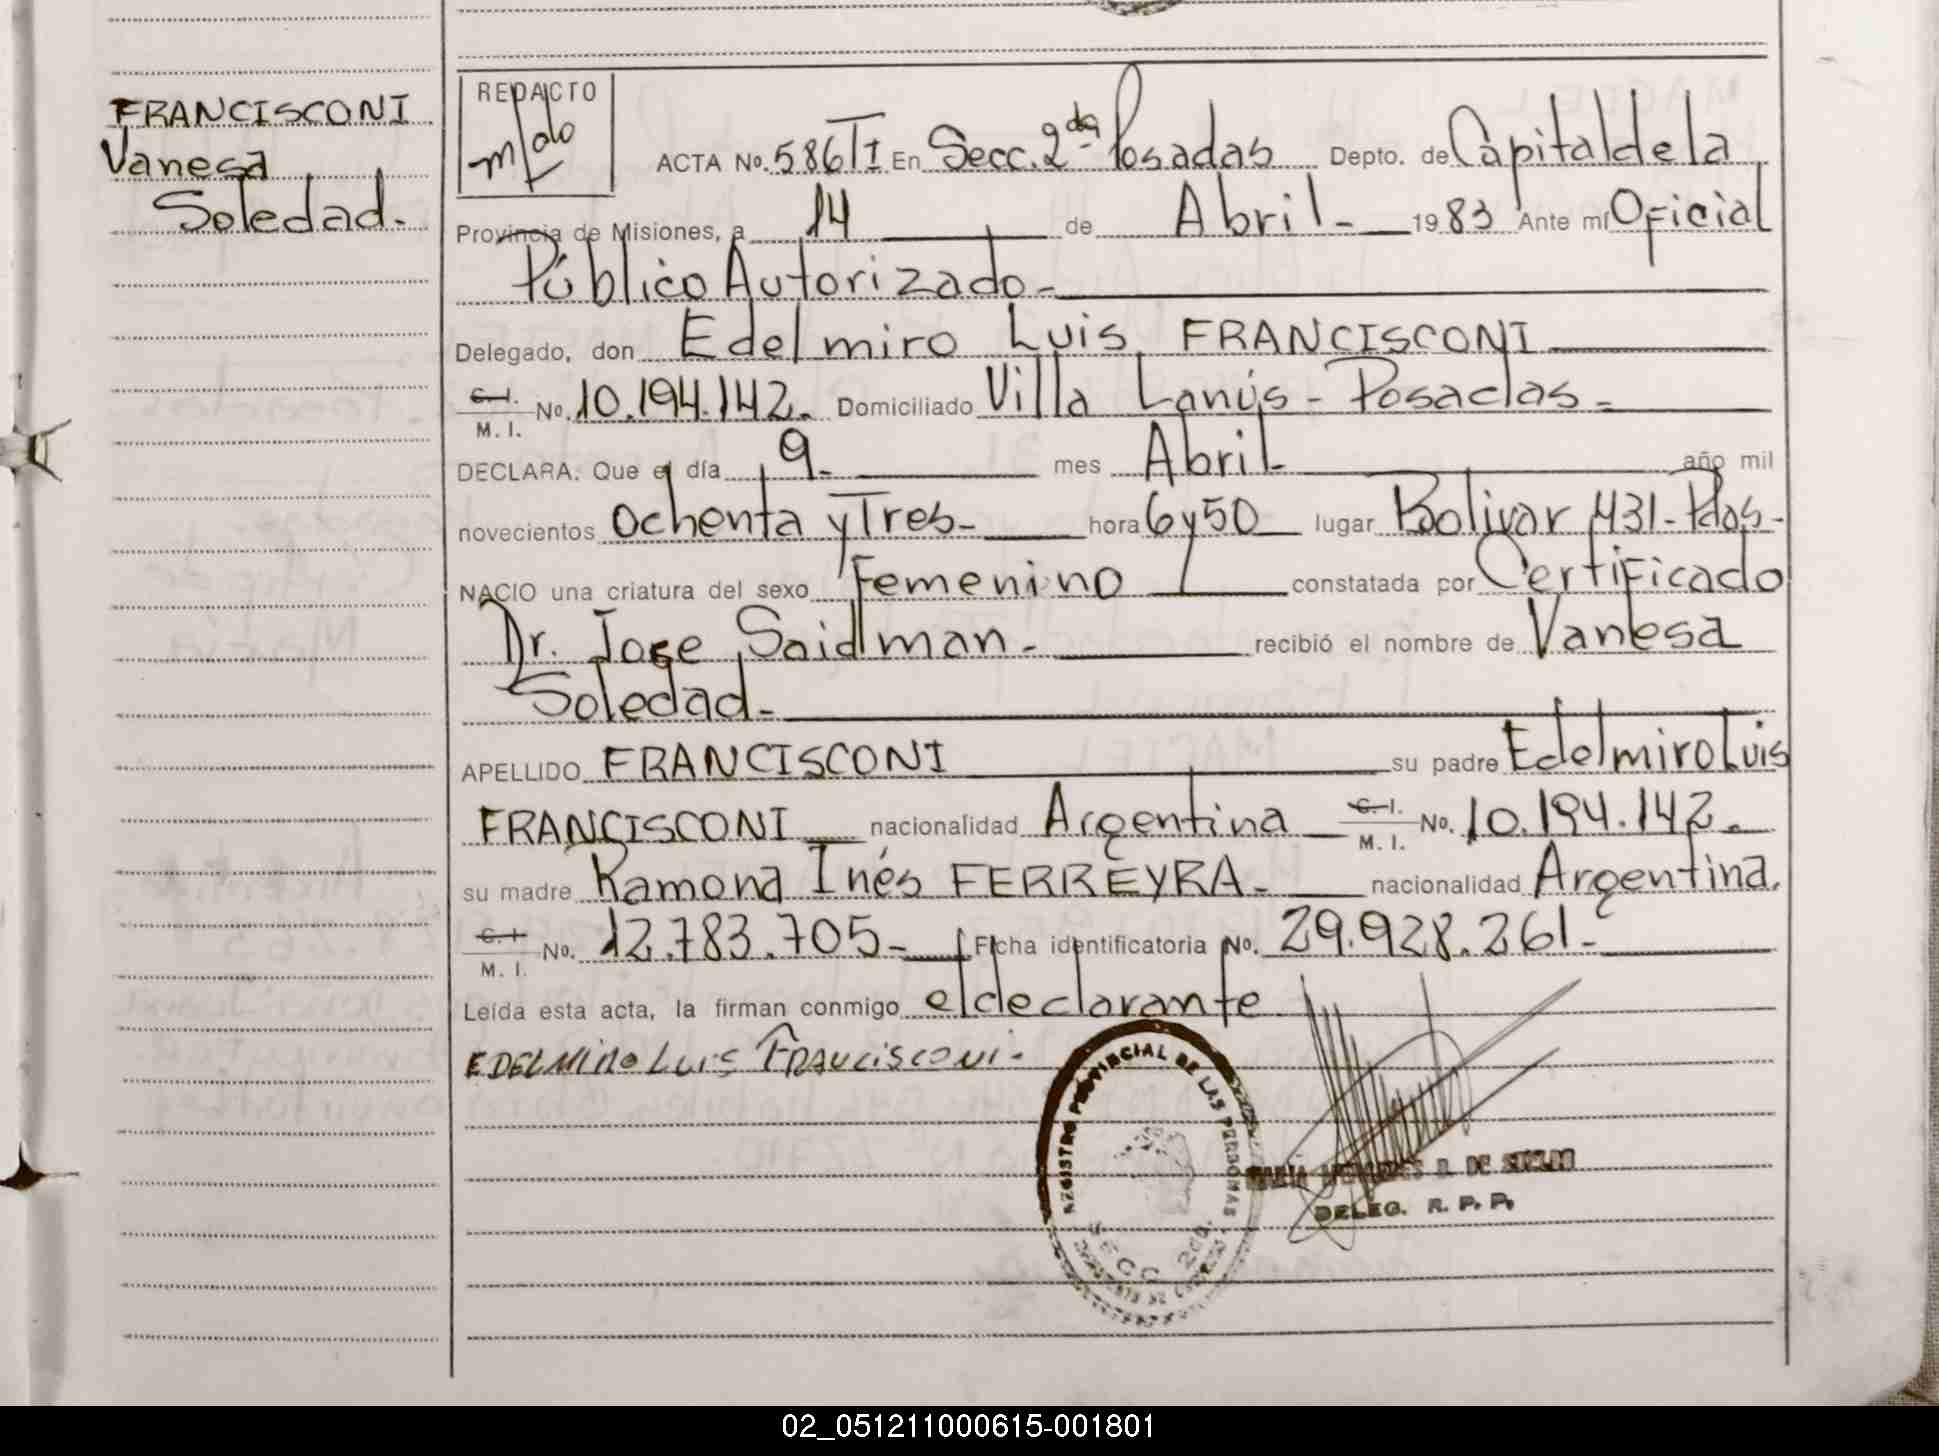 FRANCISCONI
Vanesa
Soledad.
REDACTO
ACTA No. 586 TI En Secc. 2da Posadas Depto. de Capital de la
Provincia de Misiones, a 14 de Abril - 1983 Ante mí Oficial
Público Autorizado -
Delegado, don Edelmiro Luis FRANCISCONI
C. I. M. I. No. 10.194.142. Domiciliado Villa Lanús - Posadas -
DECLARA: Que el día 9 - mes Abril año mil
novecientos Ochenta y Tres - hora 6 y 50 lugar Bolivar 431 - Pdas -
NACIO una criatura del sexo Femenino constatada por Certificado
Dr. Jose Saidman - recibió el nombre de Vanesa
Soledad -
APELLIDO FRANCISCONI su padre Edelmiro Luis
FRANCISCONI nacionalidad Argentina C. I. M. I. No. 10.194.142 -
su madre Ramona Inés FERREYRA - nacionalidad Argentina.
C. I. M. I. No. 12.783.705 - Ficha identificatoria No. 29.928.261 -
Leída esta acta, la firman conmigo el declarante
EDELMIRO LUIS FRANCISCONI -
REGISTRO PROVINCIAL DE LAS PERSONAS
SECC. 2da.
MARIA
DELEG. R. P. P.
02_051211000615-001801